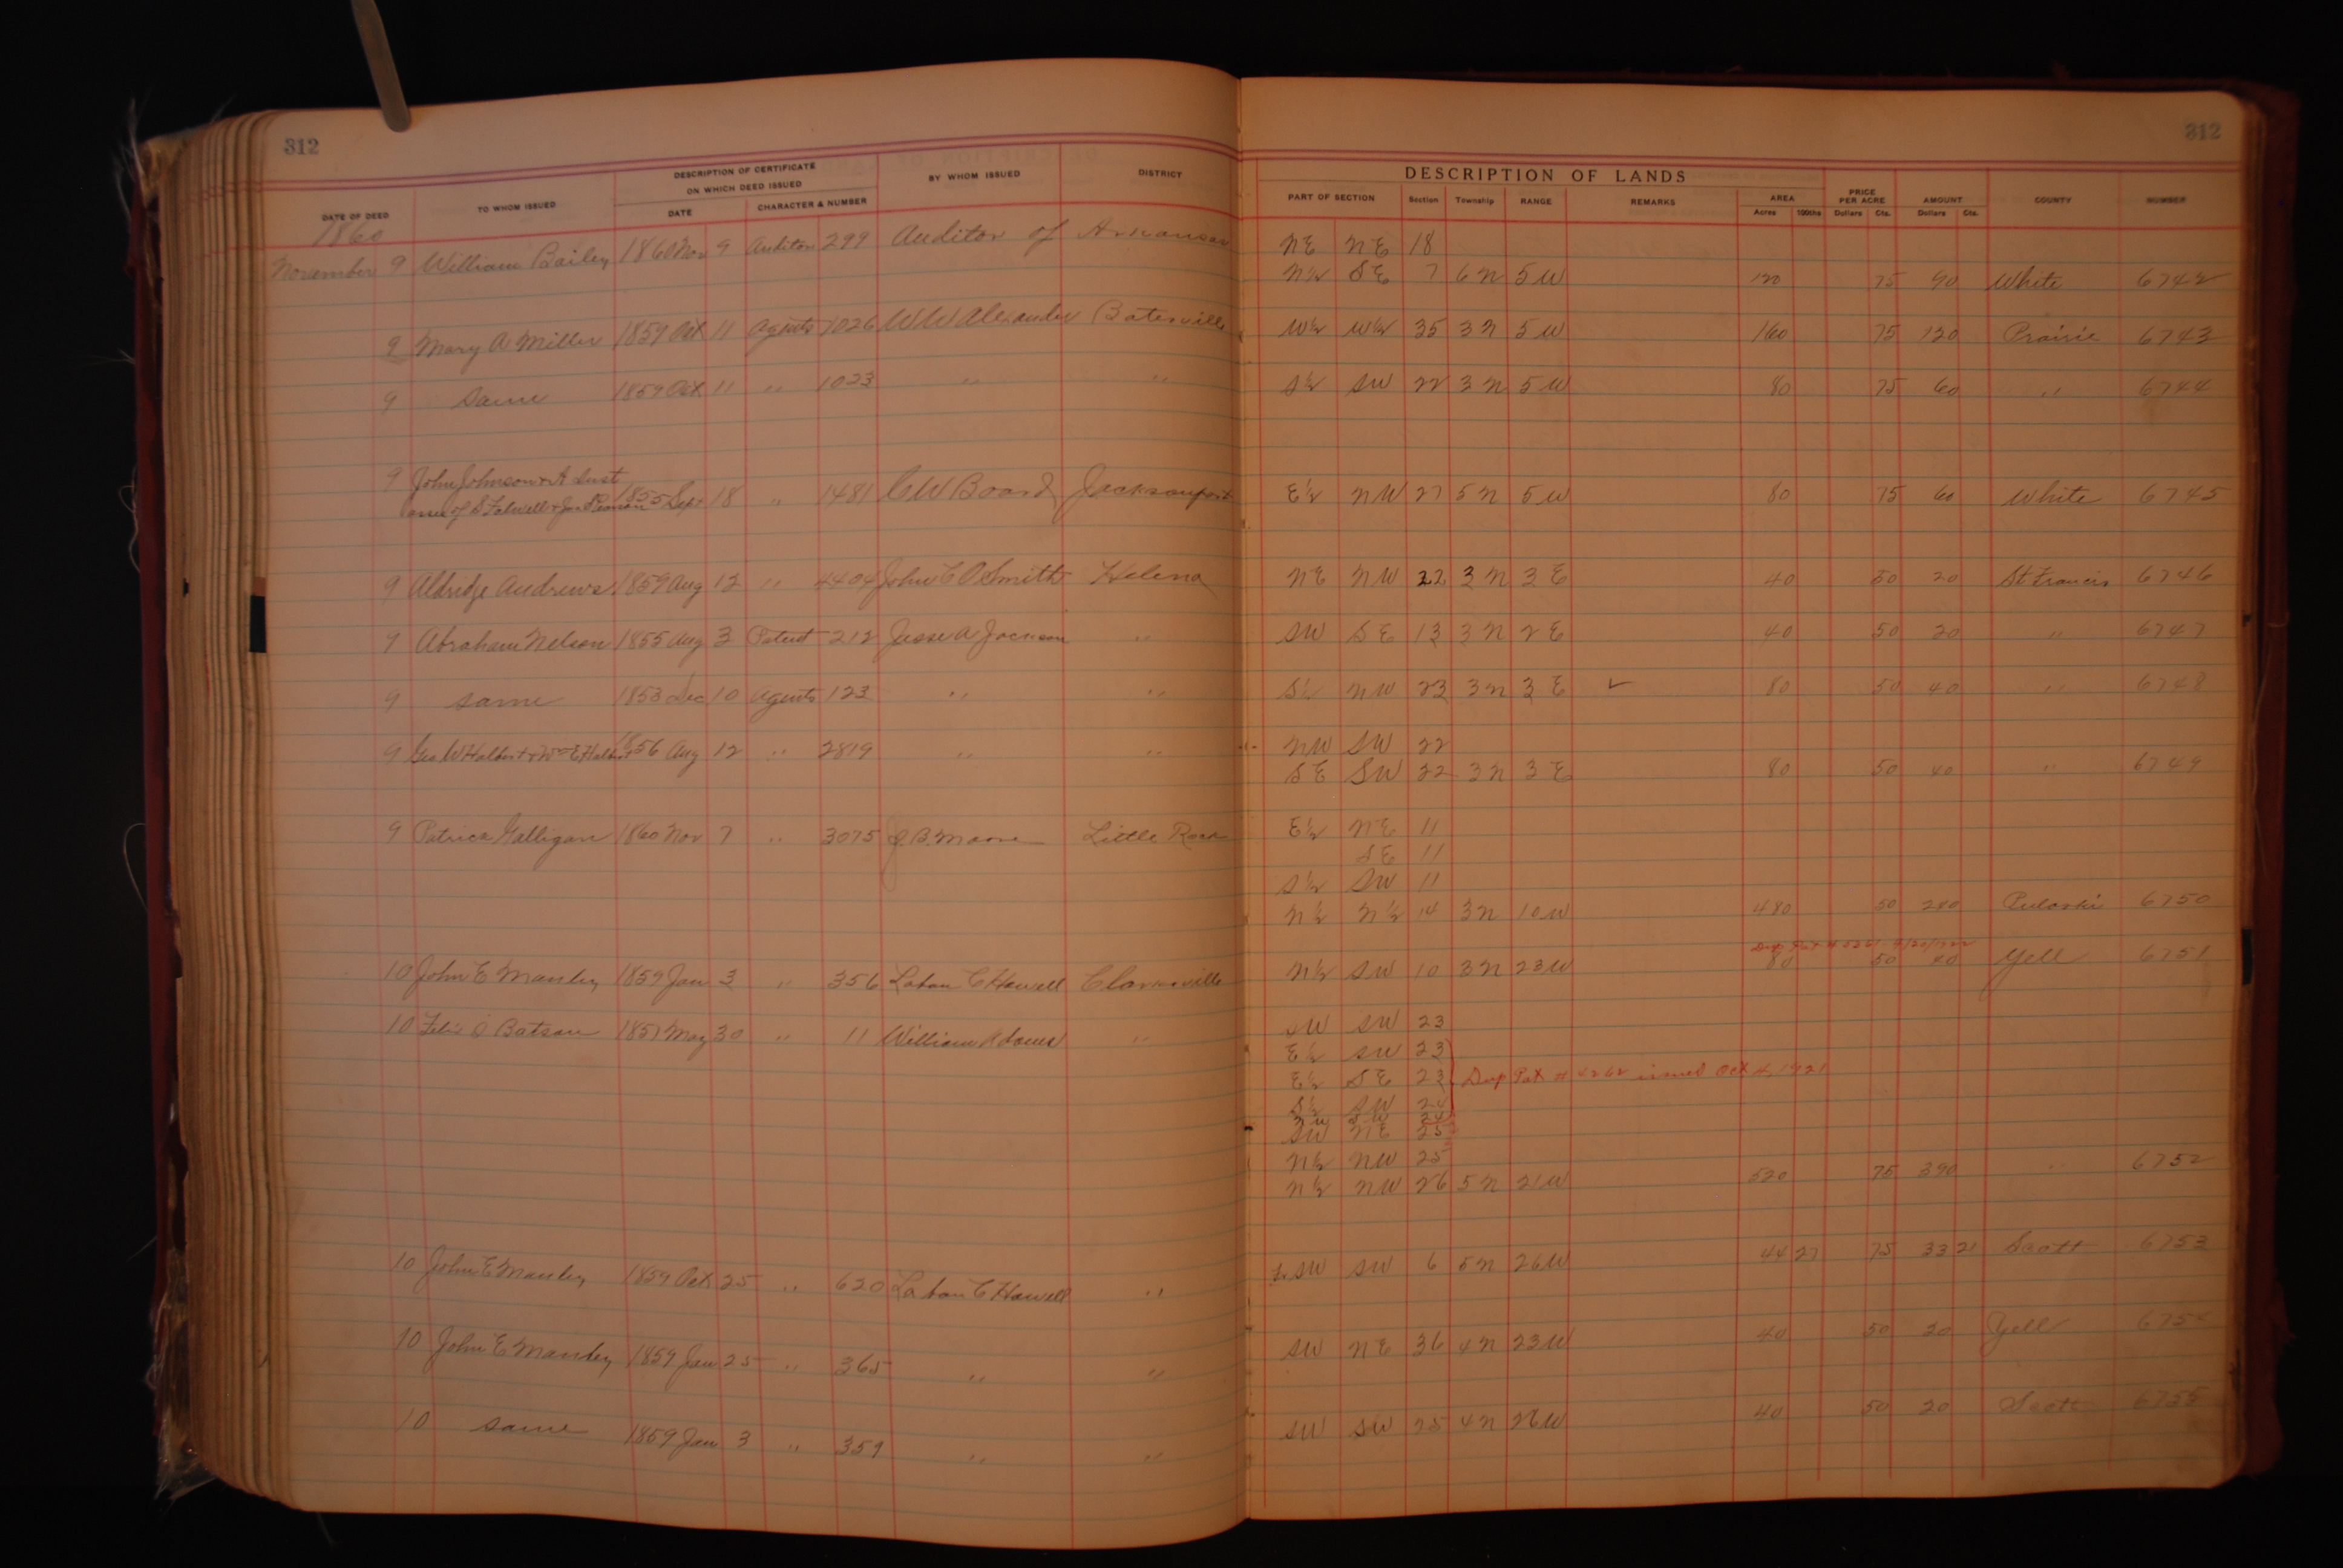 312 312
DESCRIPTION OF CERTIFICATE ON WHICH DEED ISSUED
DESCRIPTION OF LANDS
DATE OF DEED TO WHOM ISSUED DATE CHARACTER & NUMBER BY WHOM ISSUED DISTRICT PART OF SECTION Section Township RANGE REMARKS AREA Acres 100ths PRICE PER ACRE Dollars Cts. AMOUNT Dollars Cts. COUNTY NUMBER
1860
November 9 William Bailey 1860 Nov 9 Auditor 299 Auditor of Arkansas NE NE 18
N½ SE 7 6N 5W 120 75 90 White 6742
9 Mary A Miller 1859 Oct 11 Agents 1026 WW Alexander Batesville W½ W½ 35 3N 5W 160 75 120 Prairie 6743
9 Same 1859 Oct 11 " 1023 " " S½ SW 22 3N 5W 80 75 60 " 6744
9 John Johnson &
1855 Sep 18 " 1481 CW Board Jacksonport E½ NW 27 5N 5W 80 75 60 White 6745
9 Aldridge Andrews 1859 Aug 12 " 4404 John C O Smith Helena NE NW 22 3N 3E 40 50 20 St Francis 6746
9 Abraham Nelson 1855 Aug 3 Patent 212 Jesse A Jackson " SW SE 13 3N 2E 40 50 20 " 6747
9 same 1853 Dec 10 Agents 123 " " S½ NW 23 3N 3E ✓ 80 50 40 " 6748
9 Geo W Halbert & Wm E Halbert 1856 Aug 12 " 2819 " " NW SW 22
SE SW 22 3N 3E 80 50 40 " 6749
9 Patrick Galligan 1860 Nov 7 " 3075 J B. Moore Little Rock E½ NE 11
SE 11
S½ SW 11
N½ N½ 14 3N 10W 480 50 240 Pulaski 6750
Dup Pat #
10 John E Manley 1859 Jan 3 " 356 Laban C Howell Clarksville N½ SW 10 3N 23W 80 50 40 Yell 6751
10 Felix Batson 1857 May 30 " 11 William Adams " SW SW 23
E½ SW 23
E½ SE 23 Dup Pat # 4262 issued Oct 4, 1921
S½ SW 24
SW 24
SW NE 25
N½ NW 25
N½ NW 26 5N 21W 520 75 390 " 6752
10 John E Manley 1859 Oct 25 " 620 Laban C Howell " SW SW 6 5N 26W 44 27 75 33 21 Scott 6753
10 John E Manley 1859 Jan 25 " 365 " " SW NE 36 4N 23W 40 50 20 Yell 6754
10 same 1859 Jan 3 " 359 " " SW SW 25 4N 26W 40 50 20 Scott 6755